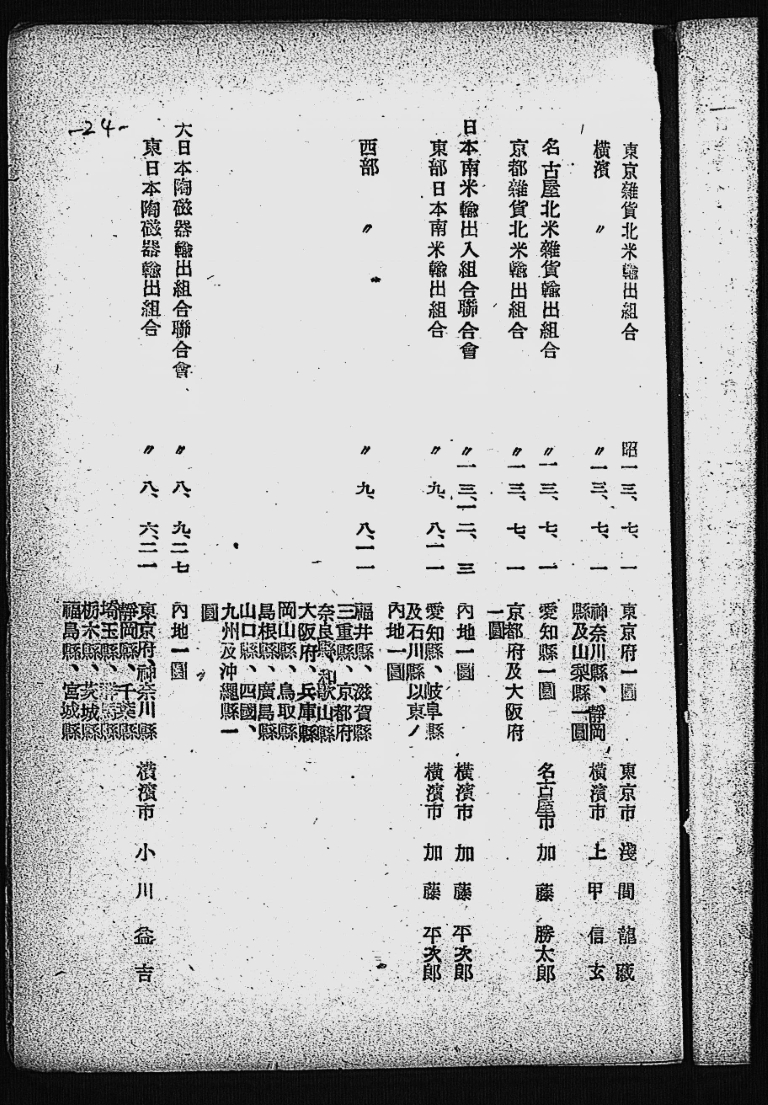 東京雜貨北米輸出組合 昭一三、七、一 東京府一圓 東京市 淺間龍藏
橫濱 〃 〃一三、七、一 神奈川縣、靜岡
縣及山梨縣一圓 橫濱市 上甲信玄
名古屋北米雜貨輸出組合 〃一三、七、一 愛知縣一圓 名古屋市 加藤勝太郎
京都雜貨北米輸出組合 〃一三、七、一 京都府及大阪府
一圓
日本南米輸出入組合聯合會 〃一三、一二、三 內地一圓 橫濱市 加藤平次郎
東部日本南米輸出組合 〃九、八、一一 愛知縣、岐阜縣
及石川縣以東ノ
內地一圓 橫濱市 加藤平次郎
西部 〃 〃九、八、一一 福井縣、滋賀縣
三重縣、京都府
奈良縣、和歌山縣
大阪府、兵庫縣
岡山縣、鳥取縣
島根縣、廣島縣
山口縣、四國、
九州及沖繩縣一
圓
大日本陶磁器輸出組合聯合會 〃八、九、二七 內地一圓 〃
東日本陶磁器輸出組合 〃八、六、二一 東京府、神奈川縣
靜岡縣、千葉縣
埼玉縣、群馬縣
栃木縣、茨城縣
福島縣、宮城縣 橫濱市 小川益吉
-24-